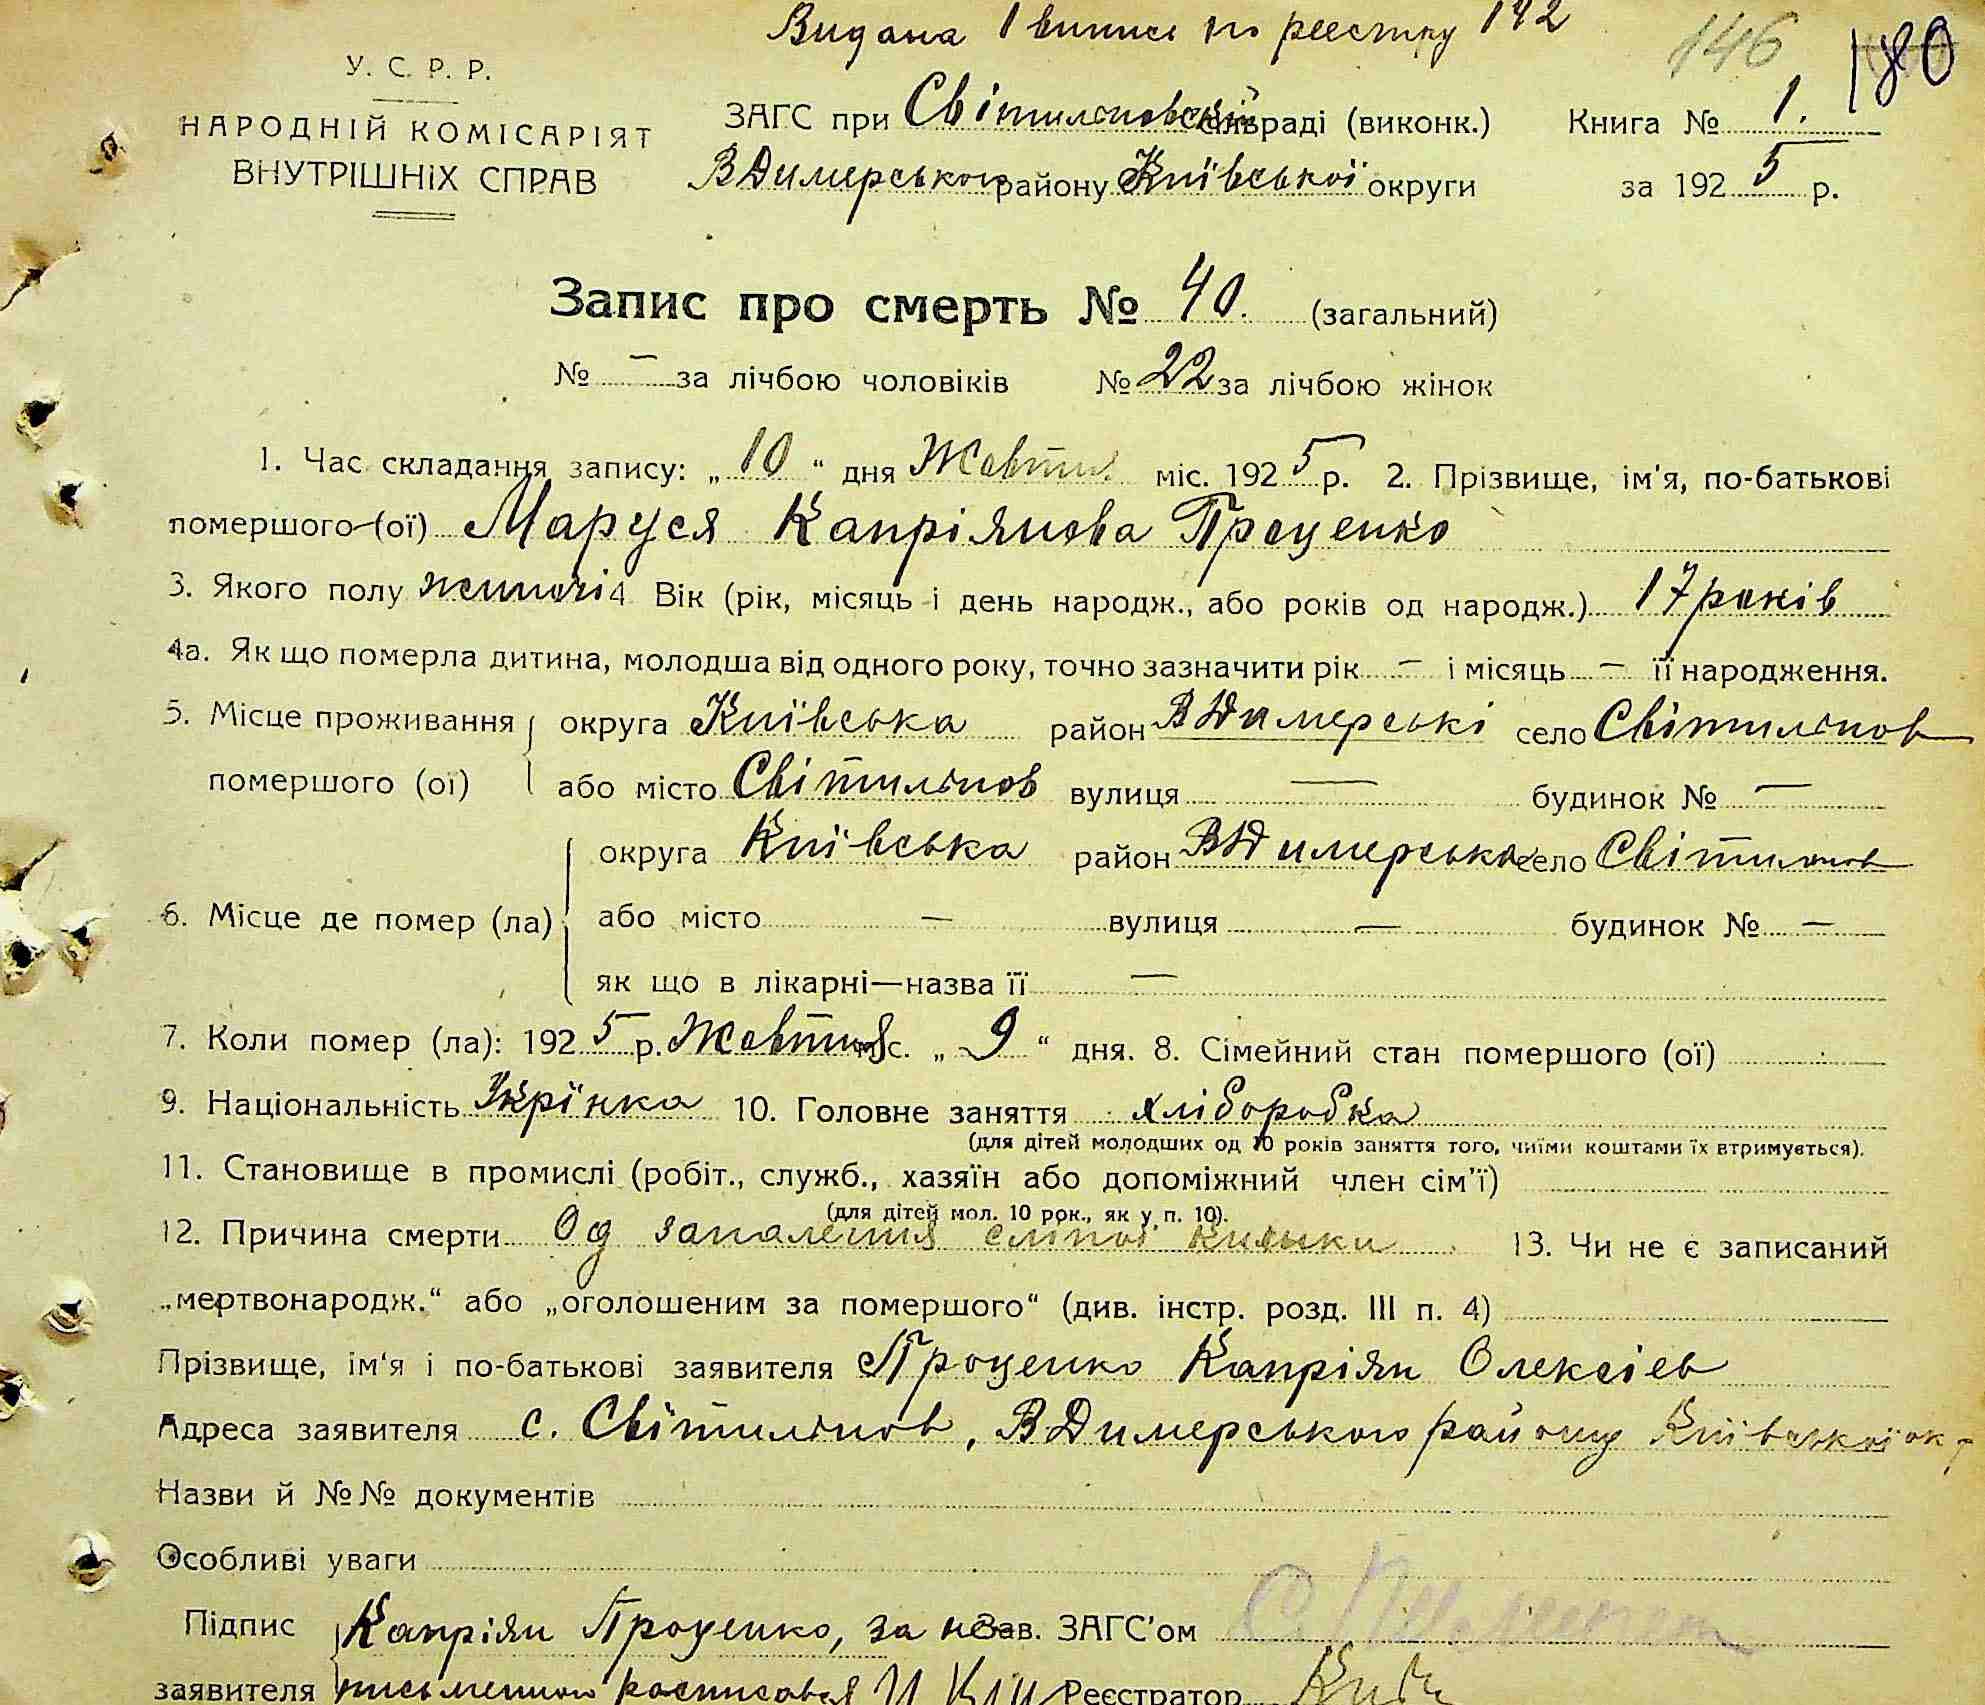 Видана 1 випис по реєстру 142
146 180
У. С. Р. Р.
НАРОДНІЙ КОМІСАРІЯТ
ВНУТРІШНІХ СПРАВ
ЗАГС при Світильновській сільраді (виконк.) Книга № 1.
ВДимерського району Київської округи за 1925 р.
Запис про смерть № 40. (загальний)
№ — за лічбою чоловіків № 22 за лічбою жінок
1. Час складання запису: „10“ дня Жовтн. міс. 1925 р. 2. Прізвище, ім'я, по-батькові
помершого (ої) Маруся Капріянова Проценко
3. Якого полу жиночі 4. Вік (рік, місяць і день народж., або років од народж.) 17 років
4а. Як що померла дитина, молодша від одного року, точно зазначити рік — і місяць — її народження.
5. Місце проживання округа Київська район ВДимерські село Світильнов
помершого (ої) або місто Світильнов вулиця — будинок № —
округа Київська район ВДимерська село Світильнов
6. Місце де помер (ла) або місто — вулиця — будинок № —
як що в лікарні—назва її —
7. Коли помер (ла): 1925 р. Жовтня міс. „9“ дня. 8. Сімейний стан помершого (ої)
9. Національність Укрїнка 10. Головне заняття хлібородка
(для дітей молодших од 10 років заняття того, чиїми коштами їх втримується).
11. Становище в промислі (робіт., служб., хазяїн або допоміжний член сім'ї)
(для дітей мол. 10 рок., як у п. 10).
12. Причина смерти Од запалення сліпої кишки 13. Чи не є записаний
„мертвонародж.“ або „оголошеним за помершого“ (див. інстр. розд. III п. 4)
Прізвище, ім'я і по-батькові заявителя Проценко Капріян Олексіев
Адреса заявителя с. Світильнов, ВДимерського району Київської ок
Назви й №№ документів
Особливі уваги
Підпис Капріян Проценко, за не Зав. ЗАГС'ом
заявителя письменного росписався Реєстратор